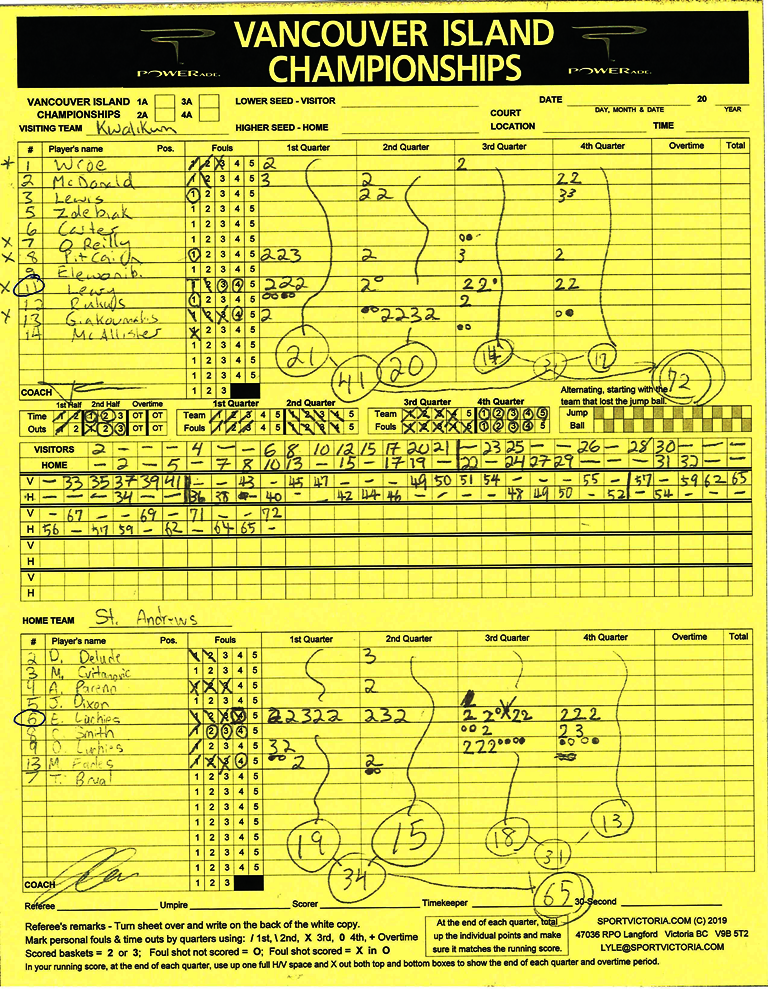 VANCOUVER ISLAND
CHAMPIONSHIPS
POWERADE
POWERADE
VANCOUVER ISLAND 1A 3A
CHAMPIONSHIPS 2A 4A
LOWER SEED - VISITOR
DATE 20
DAY, MONTH & DATE YEAR
COURT
LOCATION TIME
VISITING TEAM Kwalikum
HIGHER SEED - HOME
# Player's name Pos. Fouls 1st Quarter 2nd Quarter 3rd Quarter 4th Quarter Overtime Total
* 1 Wroe 1 2 3 4 5 2 2
2 McDonald 1 2 3 4 5 3 2 22
3 Lewis 1 2 3 4 5 22 33
5 Zdebiak 1 2 3 4 5
6 Carter 1 2 3 4 5
X 7 O Reilly 1 2 3 4 5
X 8 Pitcairn 1 2 3 4 5 223 2 3 2
9 1 2 3 4 5
X 11 Lewy 1 2 3 4 5 222 2 22 22
12 1 2 3 4 5 2
X 13 Giakoumatis 1 2 3 4 5 2 2232
14 McAllister 1 2 3 4 5
1 2 3 4 5
1 2 3 4 5
1 2 3 4 5
21 41 20 14 31 17 72
COACH 1 2 3
Alternating, starting with the
team that lost the jump ball.
1st Half 2nd Half Overtime 1st Quarter 2nd Quarter 3rd Quarter 4th Quarter
Time 1 2 1 2 3 OT OT Team 1 2 3 4 5 1 2 3 4 5 Team 1 2 3 4 5 1 2 3 4 5 Jump
Outs 1 2 1 2 3 OT OT Fouls 1 2 3 4 5 1 2 3 4 5 Fouls 1 2 3 4 5 1 2 3 4 5 Ball
VISITORS 2 - - 4 - - 6 8 10 12 15 17 20 21 - 23 25 - - 26 - 28 30 - -
HOME - 2 - 5 - 7 8 10 13 - 15 - 17 19 - 22 - 24 27 29 - - - 31 32 - -
V - 33 35 37 39 41 - - 43 - 45 47 - - - 49 50 51 54 - - - 55 - 57 - 59 62 65
H - - - 34 - - 36 38 - 40 - - 42 44 46 - - - - 48 49 50 - 52 - 54 - - -
V - 67 - - 69 - 71 - - 72
H 56 - 57 59 - 62 - 64 65 -
V
H
V
H
HOME TEAM St. Andrews
# Player's name Pos. Fouls 1st Quarter 2nd Quarter 3rd Quarter 4th Quarter Overtime Total
2 D. Delude 1 2 3 4 5 3
3 M. Cvitanovic 1 2 3 4 5
4 A. Pareno 1 2 3 4 5 2
5 J. Dixon 1 2 3 4 5
6 E. Luchies 1 2 3 4 5 22322 232 2 2 22 222
8 C. Smith 1 2 3 4 5 2 23
9 O. Luchies 1 2 3 4 5 32 222
13 M. Earles 1 2 3 4 5 2 2
7 T. Brual 1 2 3 4 5
1 2 3 4 5
1 2 3 4 5
1 2 3 4 5
1 2 3 4 5
1 2 3 4 5
1 2 3 4 5
19 34 15 18 31 13 65
COACH 1 2 3
Referee Umpire Scorer Timekeeper 30-Second
Referee's remarks - Turn sheet over and write on the back of the white copy.
Mark personal fouls & time outs by quarters using: / 1st, \ 2nd, X 3rd, 0 4th, + Overtime
Scored baskets = 2 or 3; Foul shot not scored = O; Foul shot scored = X in O
In your running score, at the end of each quarter, use up one full H/V space and X out both top and bottom boxes to show the end of each quarter and overtime period.
At the end of each quarter, total
up the individual points and make
sure it matches the running score.
SPORTVICTORIA.COM (C) 2019
47036 RPO Langford Victoria BC V9B 5T2
LYLE@SPORTVICTORIA.COM